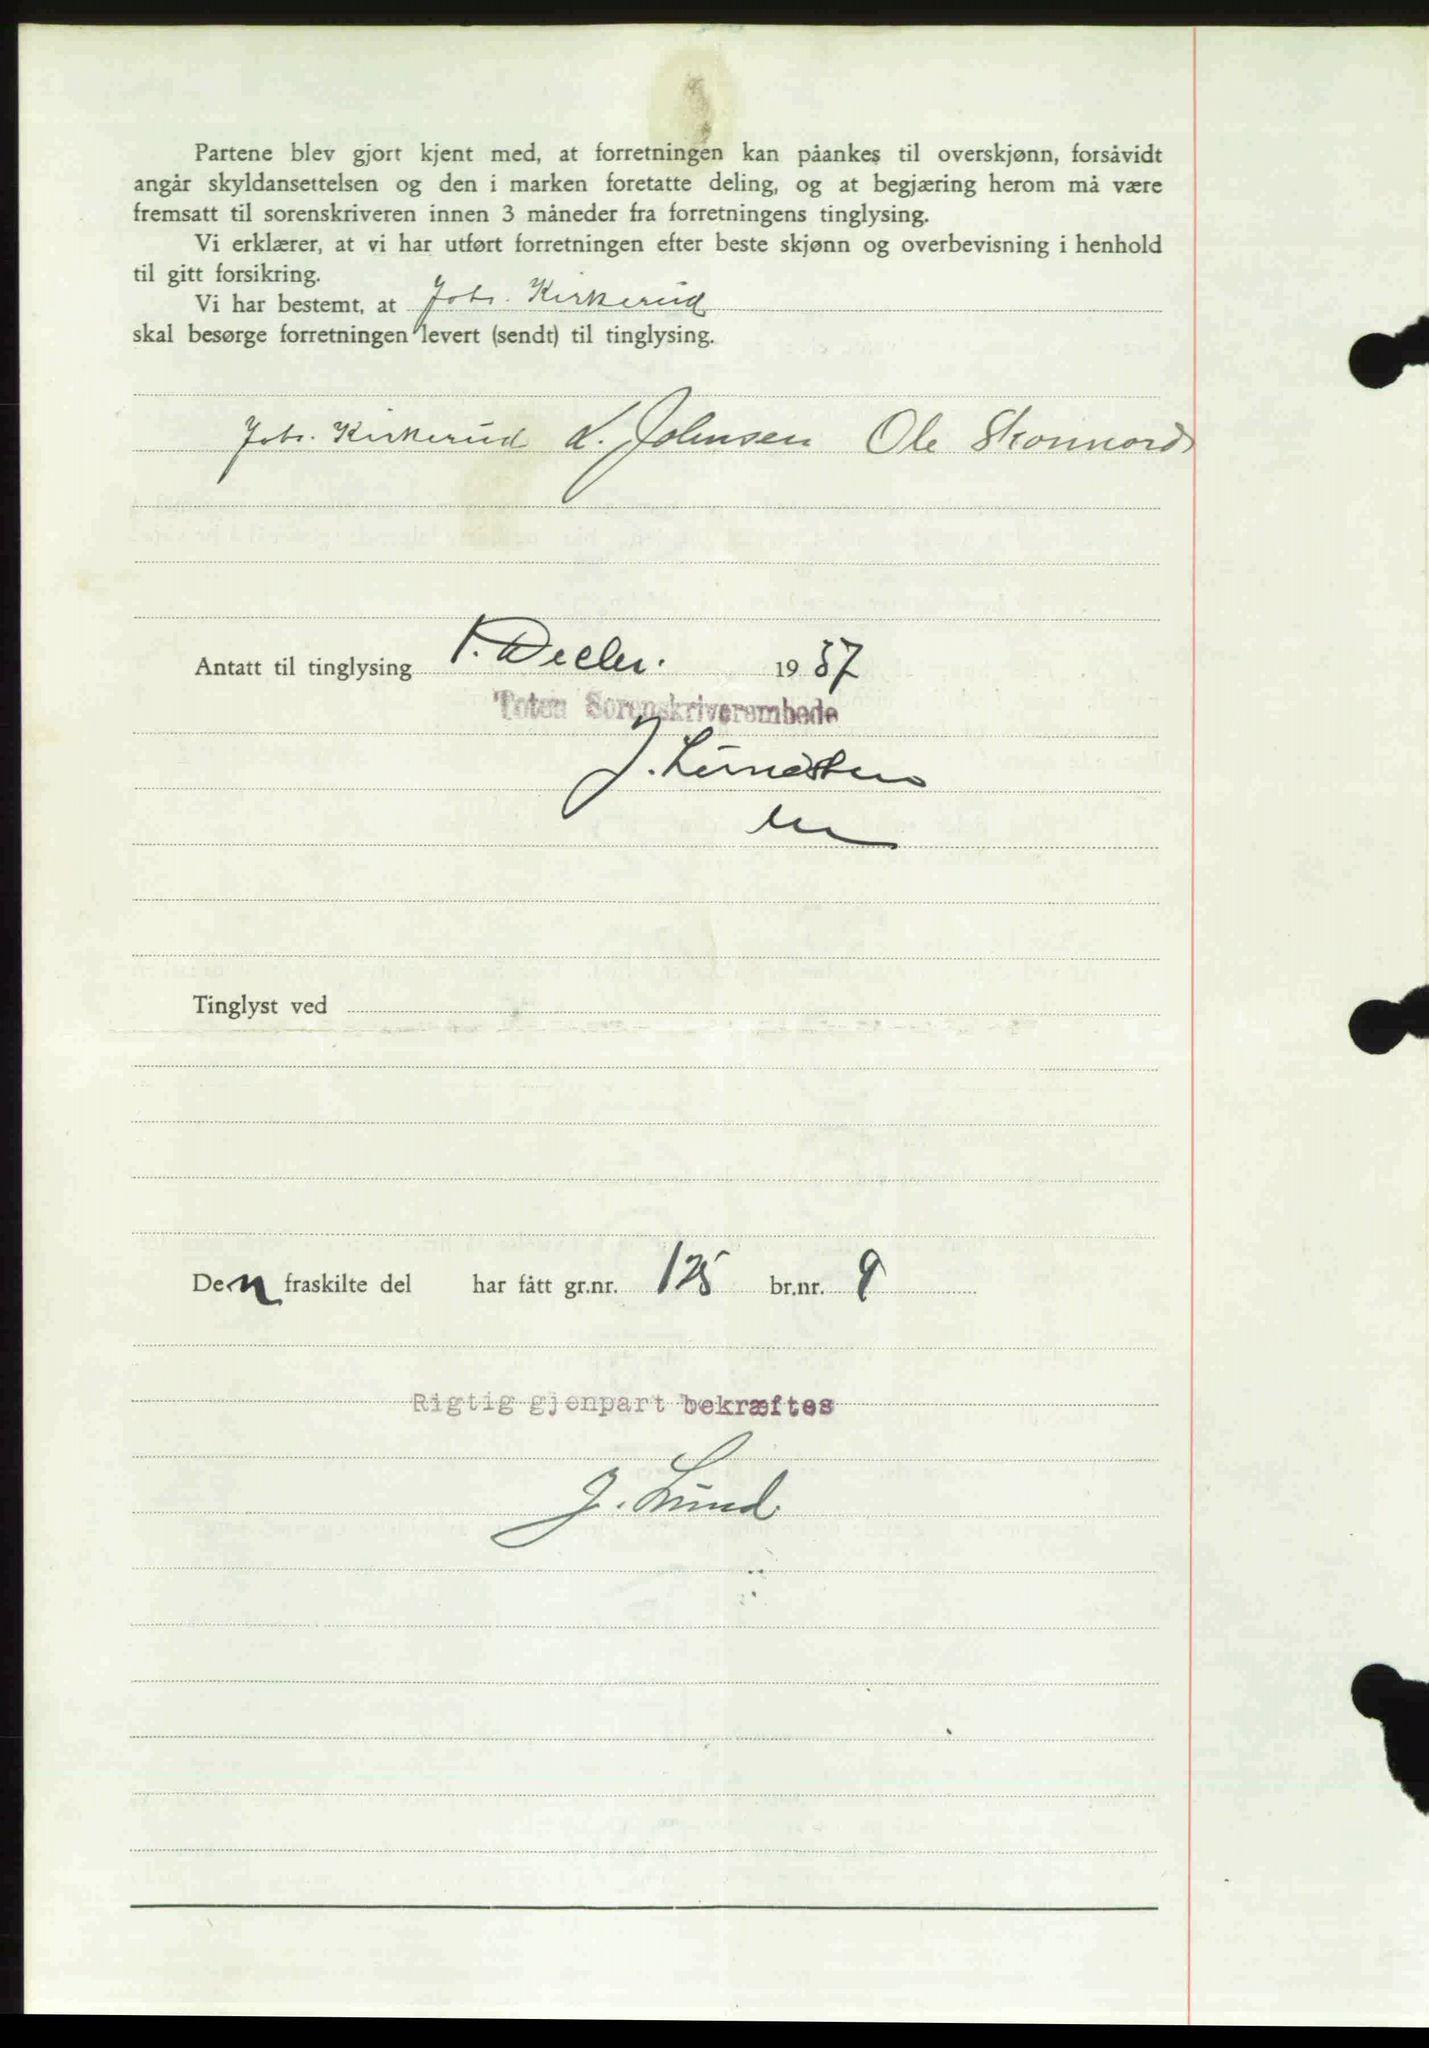 Partene blev gjort kjent med, at forretningen kan påankes til overskjønn, forsåvidt
angår skyldansettelsen og den i marken foretatte deling, og at begjæring herom må være
fremsatt til sorenskriveren innen 3 måneder fra forretningens tinglysing.
Vi erklærer, at vi har utført forretningen efter beste skjønn og overbevisning i henhold
til gitt forsikring.
Vi har bestemt, at Johs. Kirkerud
skal besørge forretningen levert (sendt) til tinglysing.
Johs. Kirkerud L. Johnsen Ole Skonnord
Antatt til tinglysing 1. Decbr. 1937
Toten Sorenskriverembede
J.
Tinglyst ved
Den fraskilte del har fått gr.nr. 125 br.nr. 9
Rigtig gjenpart bekræftes
J. Lund